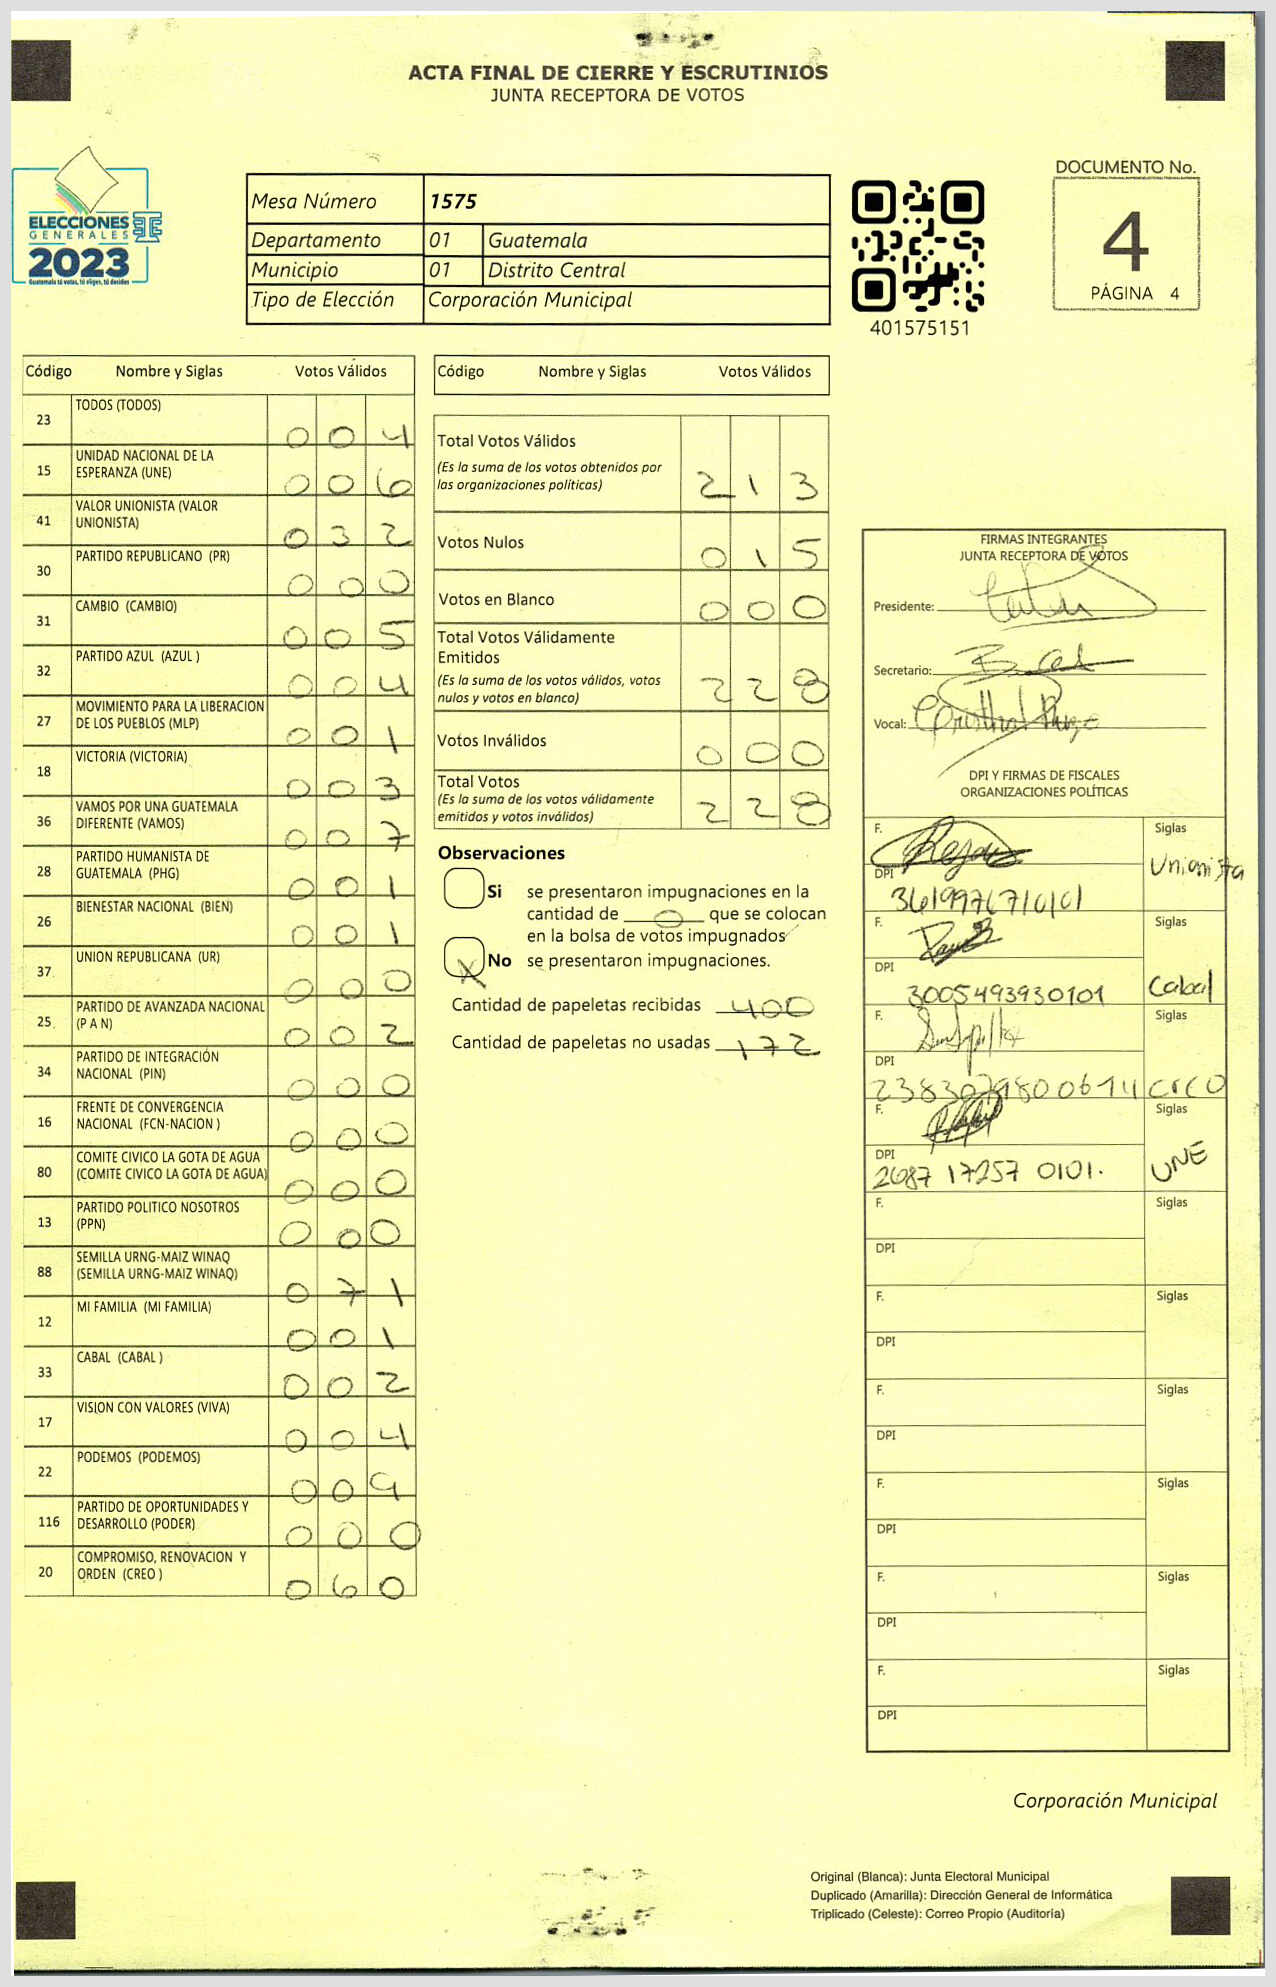 ACTA FINAL DE CIERRE Y ESCRUTINIOS
JUNTA RECEPTORA DE VOTOS
ELECCIONES
GENERALES
2023
Guatemala tú votas, tú eliges, tú decides
Mesa Número 1575
Departamento 01 Guatemala
Municipio 01 Distrito Central
Tipo de Elección Corporación Municipal
401575151
DOCUMENTO No.
4
PÁGINA 4
Código Nombre y Siglas Votos Válidos
23 TODOS (TODOS) 0 0 4
15 UNIDAD NACIONAL DE LA ESPERANZA (UNE) 0 0 6
41 VALOR UNIONISTA (VALOR UNIONISTA) 0 3 2
30 PARTIDO REPUBLICANO (PR) 0 0 0
31 CAMBIO (CAMBIO) 0 0 5
32 PARTIDO AZUL (AZUL ) 0 0 4
27 MOVIMIENTO PARA LA LIBERACION DE LOS PUEBLOS (MLP) 0 0 1
18 VICTORIA (VICTORIA) 0 0 3
36 VAMOS POR UNA GUATEMALA DIFERENTE (VAMOS) 0 0 7
28 PARTIDO HUMANISTA DE GUATEMALA (PHG) 0 0 1
26 BIENESTAR NACIONAL (BIEN) 0 0 1
37 UNION REPUBLICANA (UR) 0 0 0
25 PARTIDO DE AVANZADA NACIONAL (P A N) 0 0 2
34 PARTIDO DE INTEGRACIÓN NACIONAL (PIN) 0 0 0
16 FRENTE DE CONVERGENCIA NACIONAL (FCN-NACION ) 0 0 0
80 COMITE CIVICO LA GOTA DE AGUA (COMITE CIVICO LA GOTA DE AGUA) 0 0 0
13 PARTIDO POLITICO NOSOTROS (PPN) 0 0 0
88 SEMILLA URNG-MAIZ WINAQ (SEMILLA URNG-MAIZ WINAQ) 0 7 1
12 MI FAMILIA (MI FAMILIA) 0 0 1
33 CABAL (CABAL ) 0 0 2
17 VISION CON VALORES (VIVA) 0 0 4
22 PODEMOS (PODEMOS) 0 0 9
116 PARTIDO DE OPORTUNIDADES Y DESARROLLO (PODER) 0 0 0
20 COMPROMISO, RENOVACION Y ORDEN (CREO ) 0 6 0
Código Nombre y Siglas Votos Válidos
Total Votos Válidos 2 1 3
(Es la suma de los votos obtenidos por
las organizaciones políticas)
Votos Nulos 0 1 5
Votos en Blanco 0 0 0
Total Votos Válidamente
Emitidos 2 2 8
(Es la suma de los votos válidos, votos
nulos y votos en blanco)
Votos Inválidos 0 0 0
Total Votos 2 2 8
(Es la suma de los votos válidamente
emitidos y votos inválidos)
Observaciones
Si se presentaron impugnaciones en la
cantidad de 0 que se colocan
en la bolsa de votos impugnados
X No se presentaron impugnaciones.
Cantidad de papeletas recibidas 400
Cantidad de papeletas no usadas 172
FIRMAS INTEGRANTES
JUNTA RECEPTORA DE VOTOS
Presidente:
Secretario:
Vocal:
DPI Y FIRMAS DE FISCALES
ORGANIZACIONES POLÍTICAS
F. Siglas
Unionista
DPI
F. Siglas
DPI
3005493930101 Cabal
F. Siglas
DPI
CREO
F. Siglas
DPI
2687 17257 0101. UNE
F. Siglas
DPI
F. Siglas
DPI
F. Siglas
DPI
F. Siglas
DPI
F. Siglas
DPI
F. Siglas
DPI
Corporación Municipal
Original (Blanca): Junta Electoral Municipal
Duplicado (Amarilla): Dirección General de Informática
Triplicado (Celeste): Correo Propio (Auditoría)